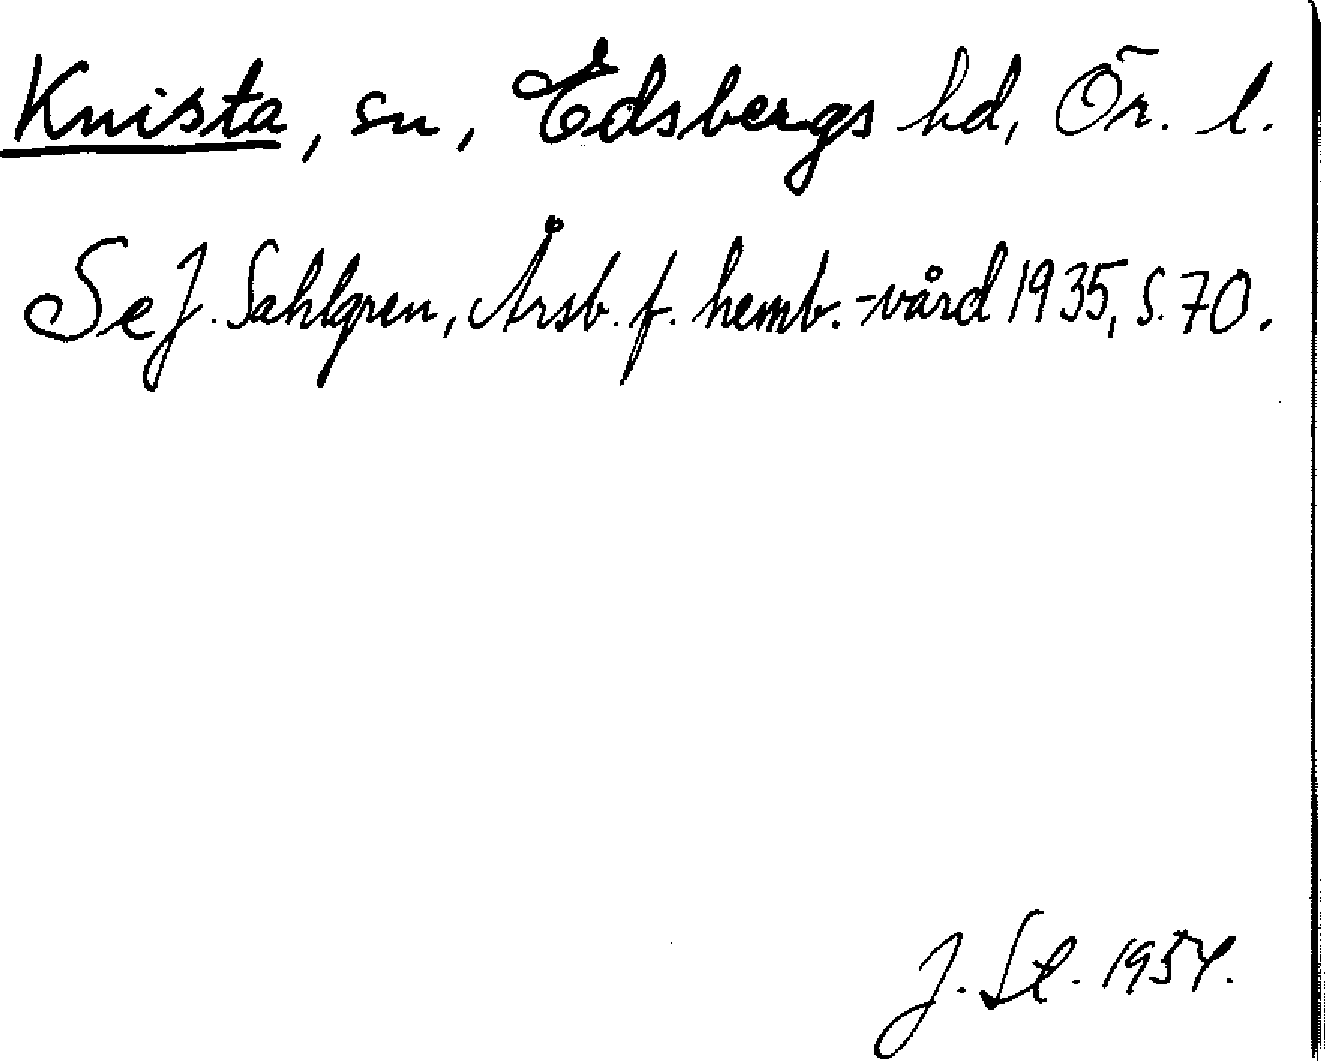 Knista, sn, Edsbergs hd, Ör. l.
Se J. Sahlgren, Årsb. f. hemb.-vård 1935, s. 70.
J. Sl. 1954.